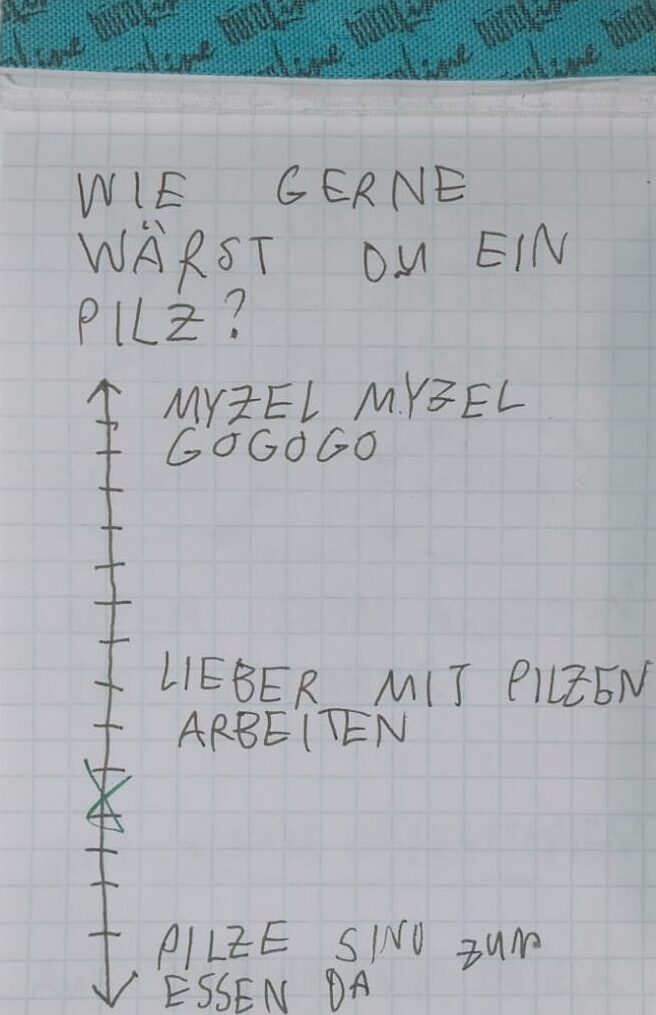 WIE GERNE
WÄRST DU EIN
PILZ?
MYZEL MYZEL
GOGOGO
LIEBER MIT PILZEN
ARBEITEN
PILZE SIND ZUM
ESSEN DA